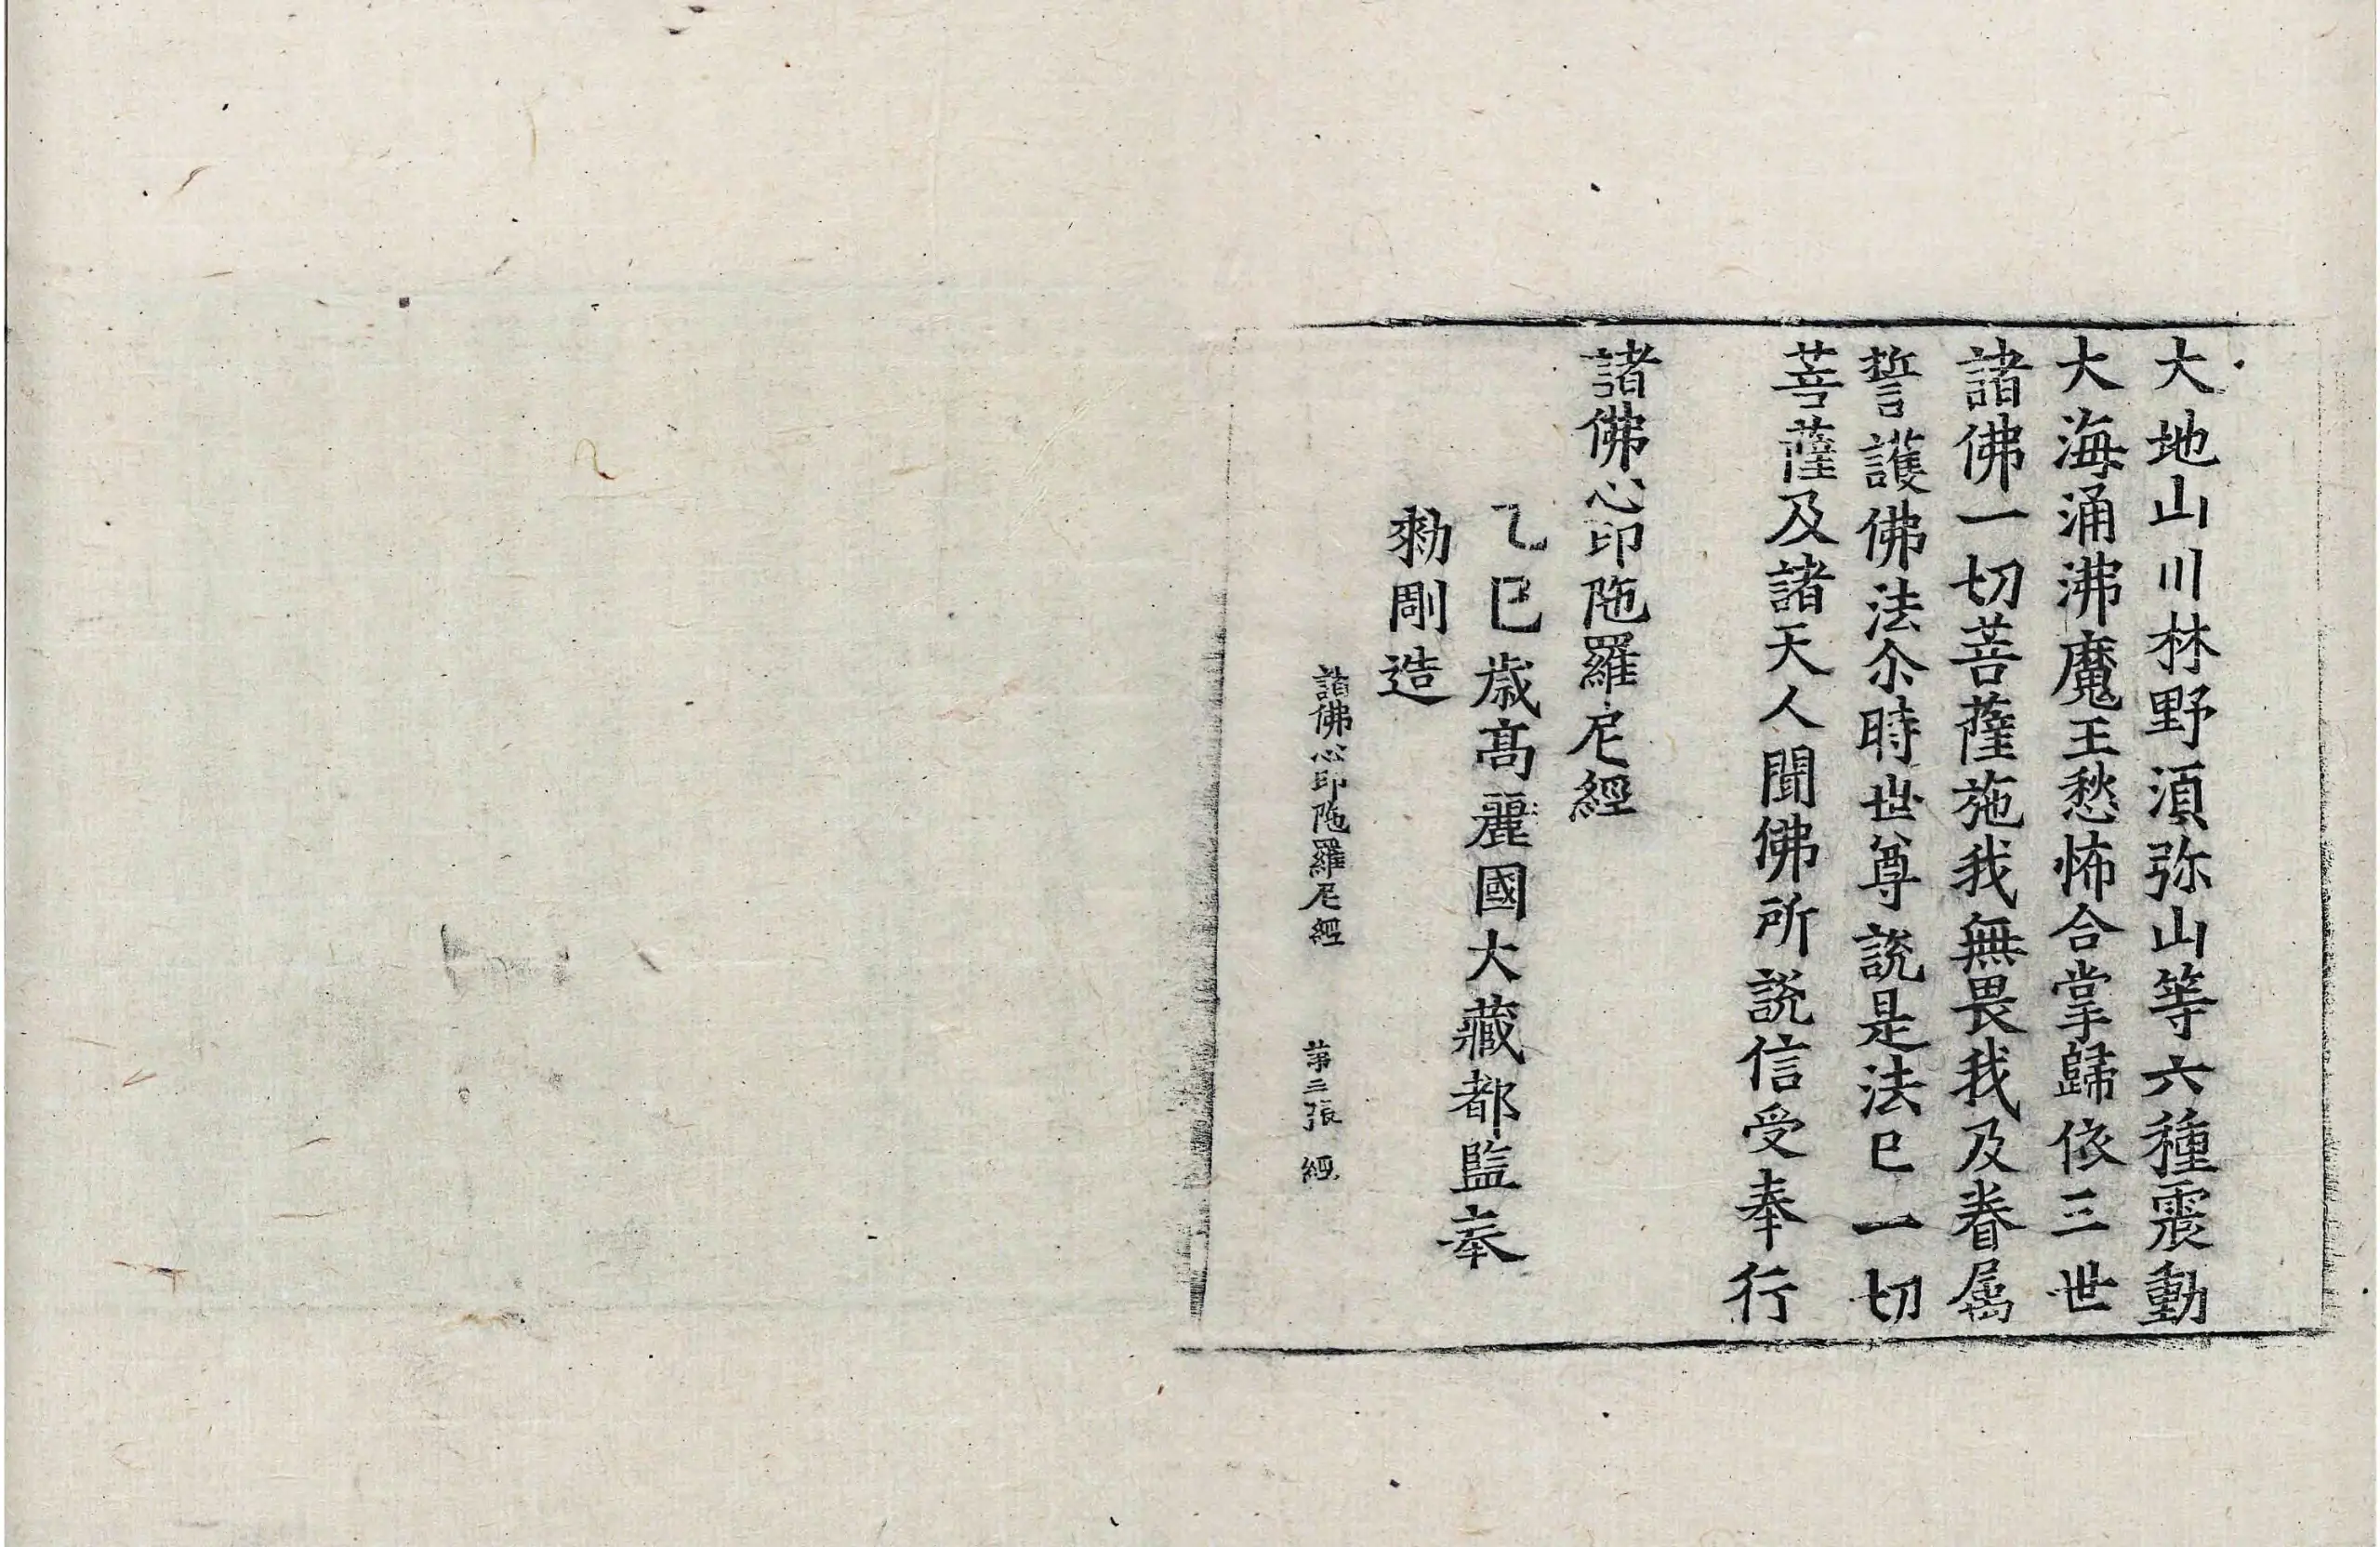 大地山川林野湏弥山等六種震動
大海涌沸魔王愁怖合掌歸依三世
諸佛一切菩薩施我無畏我及眷属
誓護佛法尒時世尊說是法已一切
菩薩及諸天人聞佛所說信受奉行
諸佛心印陁羅尼經
乙巳歳髙麗國大藏都監奉
勑彫造
諸佛心印陁羅尼經 第三張 經